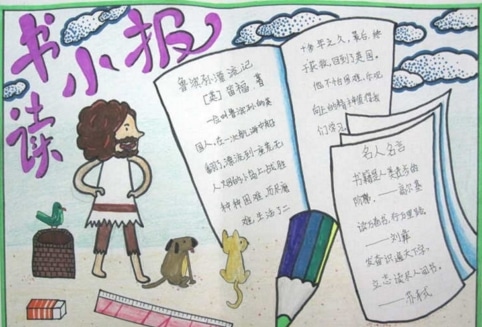 读书小报
鲁滨孙漂流记
[英] 笛福 著
一位叫鲁滨孙的英
国人,在一次航海中船
翻了,漂流到一座荒无
人烟的小岛上,战胜
种种困难,而尽艰
难,生活了二
十八年之久,最后,终
于获救,回到了英国。
他不怕困难,乐观
向上的精神值得我
们学习
名人名言
书籍是人类进步的
阶梯。——高尔基
读万卷书,行万里路
——刘彝
发奋识遍天下字,
立志读尽人间书。
——苏轼